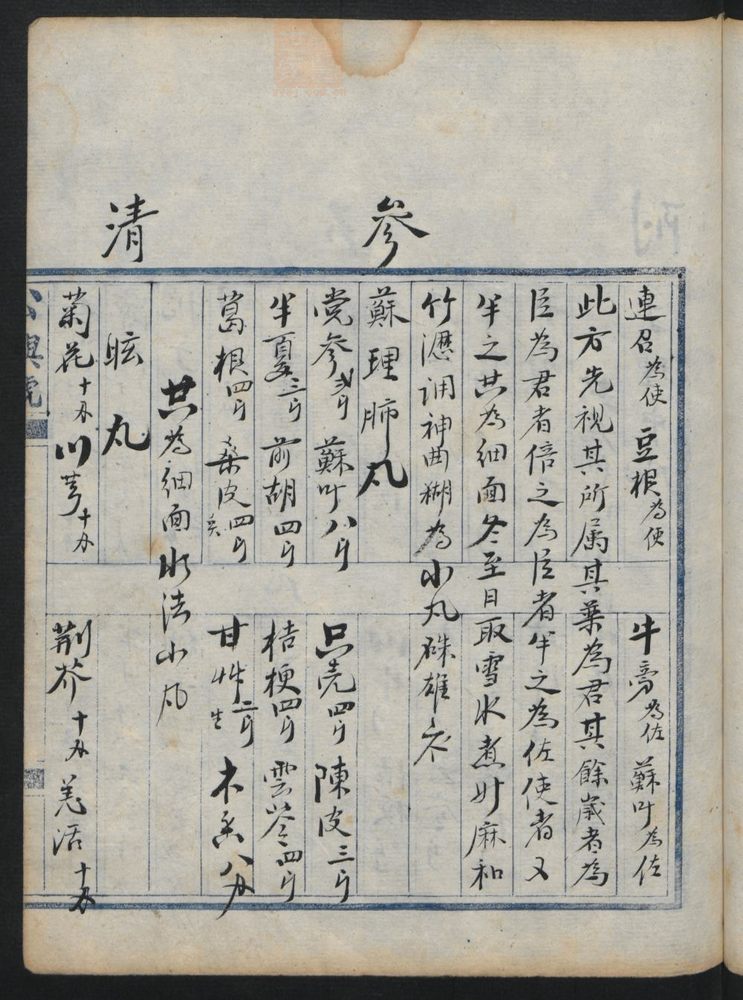 連召為使 豆根為使 牛旁為佐 蘇叶為佐
此方先視其所属其藥為君其餘歲者為
臣為君者倍之為臣者半之為佐使者又
半之共為細面冬至日取雪水煮升麻和
竹瀝調神曲糊為小丸硃雄衣
參蘇理肺丸
党參 蘇叶八 只壳四 陳皮三
半夏三 前胡四 桔梗四 雲苓四
葛根四 桑皮四炙 甘艸二生 木香八分
共為細面水法小丸
清眩丸
菊花十分 川芎十分 荆芥十分 羌活十分